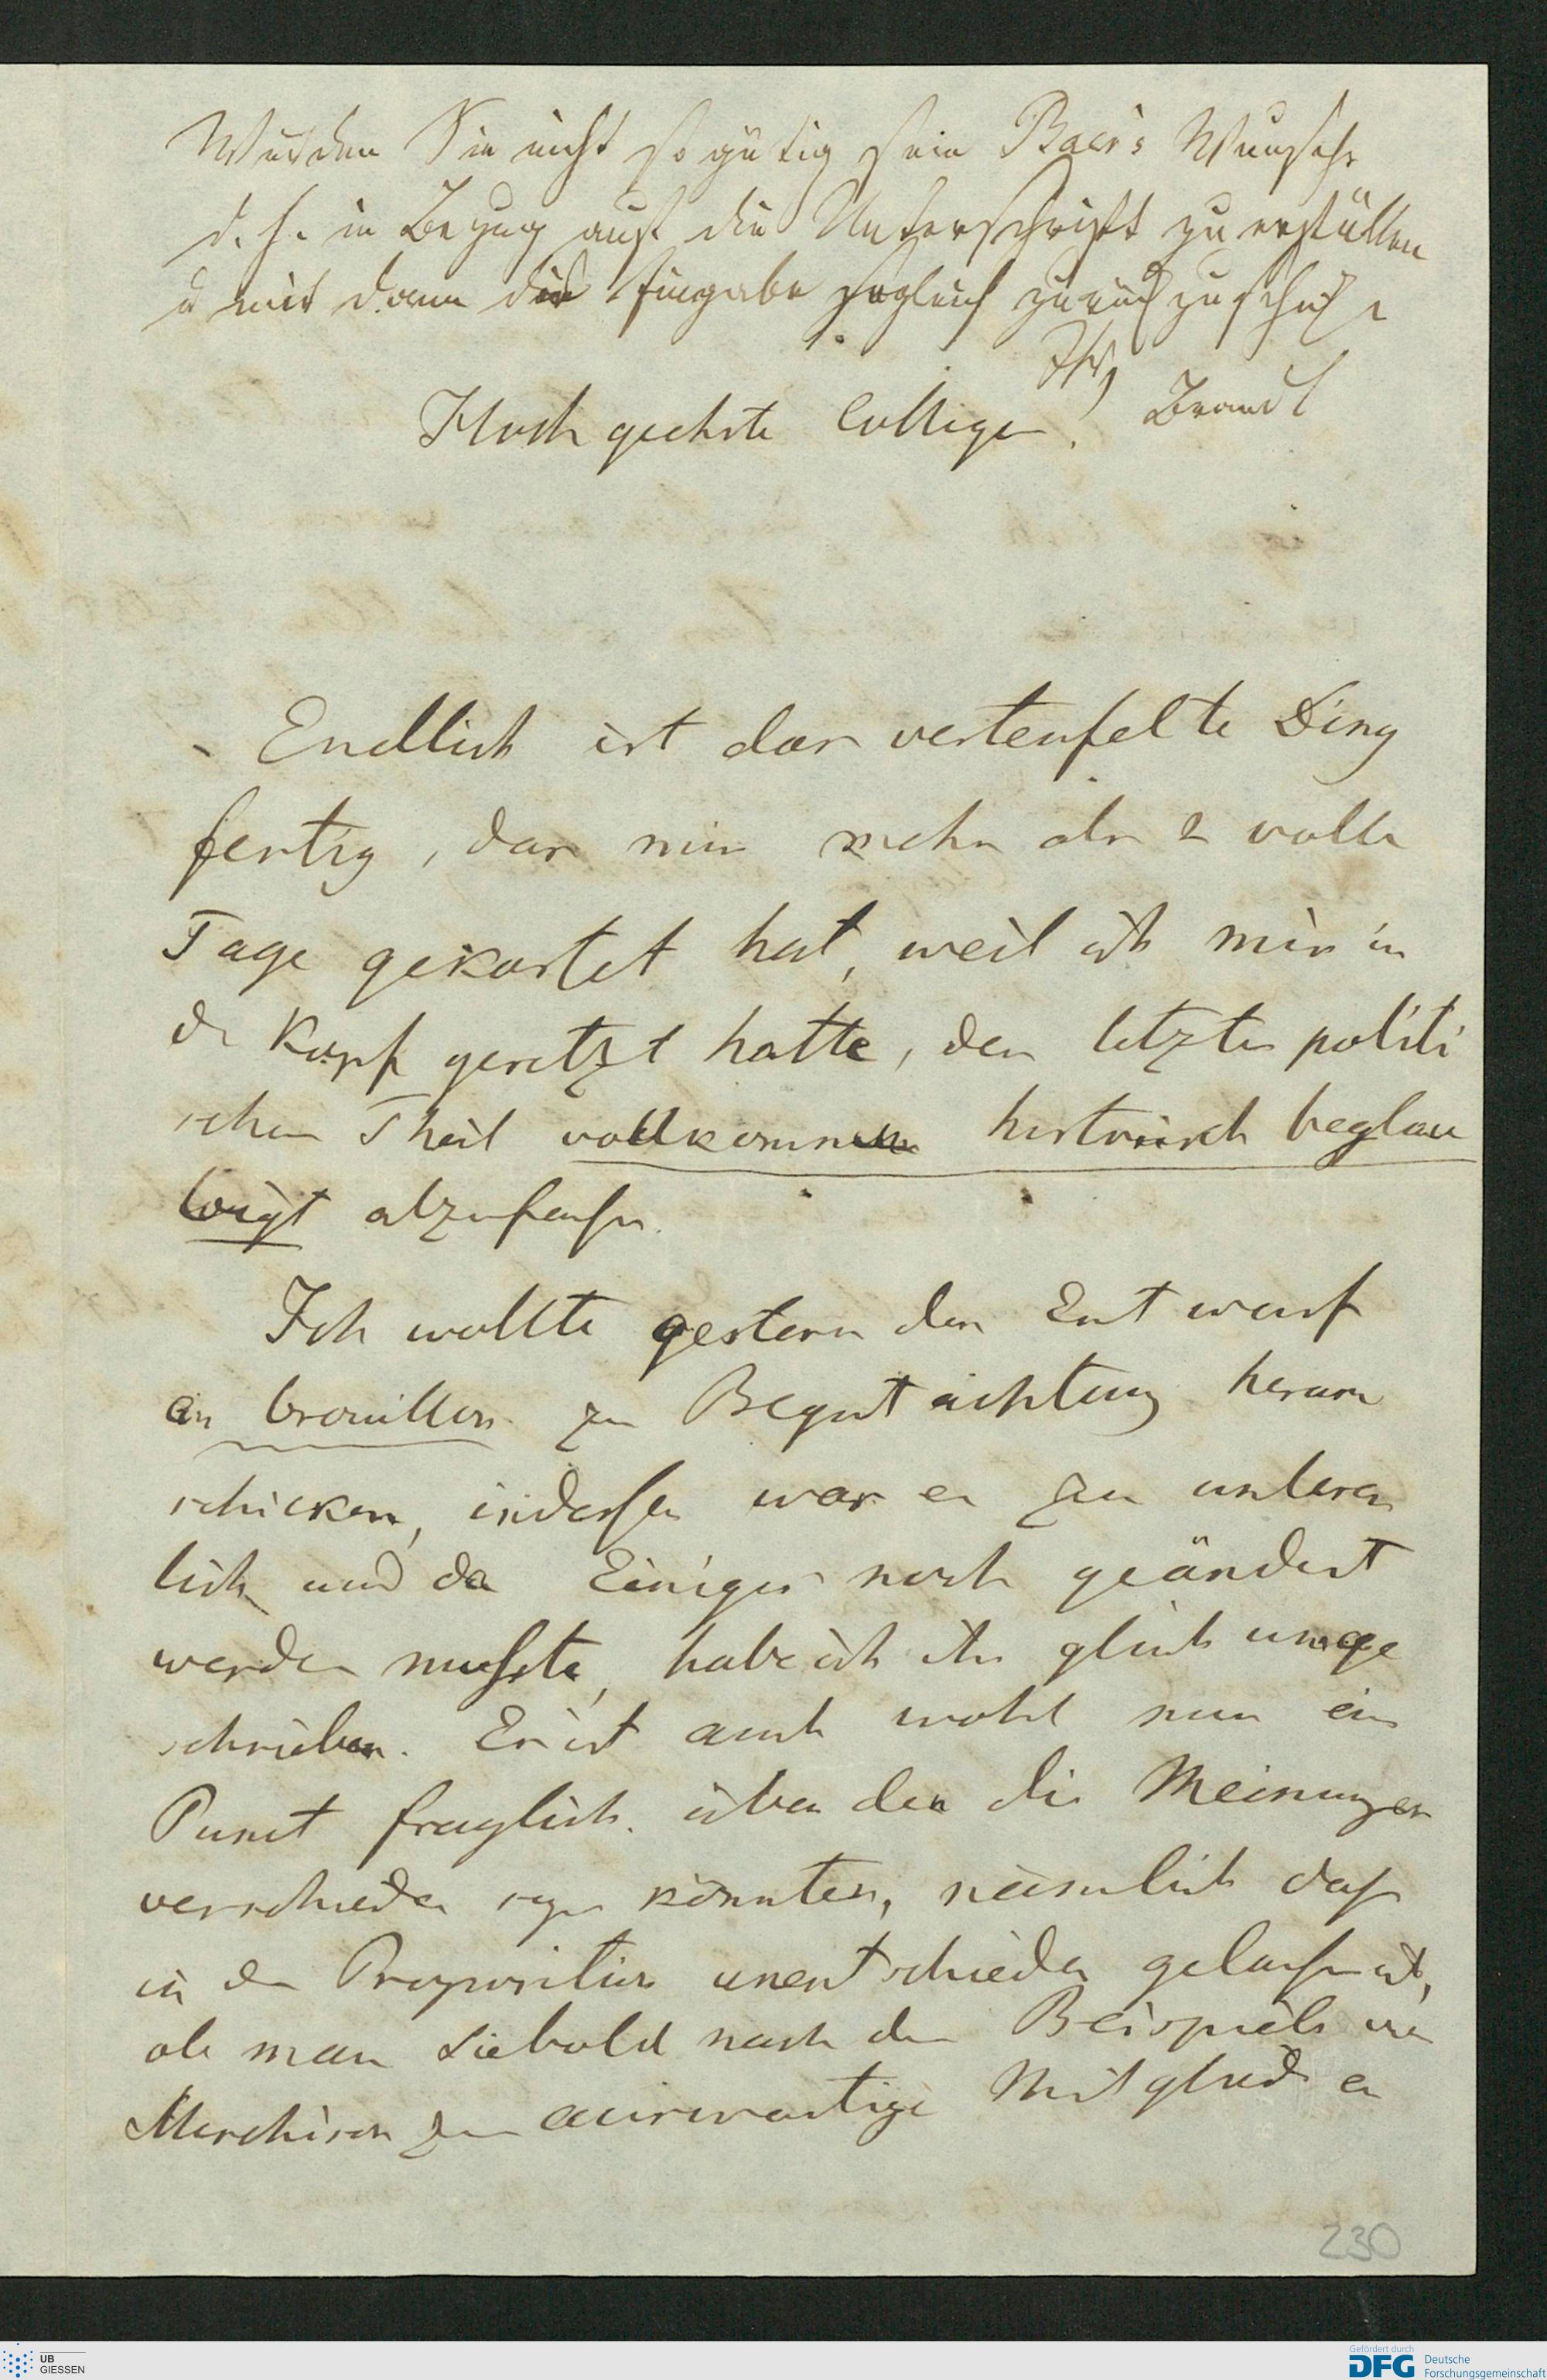 Würden Sie nicht so gütig sein Baer's Wunsch
d. h. in Bezug auf die Unterschrift zu erfüllen
u mir dann die Eingabe sogleich zurückzuschicken
Ihr Brandt
Hochgeehrte Collegen!
Endlich ist das verteufelte Ding
fertig, das mir mehr als 2 volle
Tage gekostet hat, weil ich mir in
de Kopf gesetzt hatte, den letzten politi
schen Theil vollkommen historisch beglau
bigt abzufassen.
Ich wollte gestern den Entwurf
en brouillon zur Begutachtung herum
schicken, indessen war er zu unleser
lich und da Einiges noch geändert
werden musste, habe ich ihn gleich umge
schrieben. Es ist auch wohl nur ein
Punct fraglich. über den die Meinungen
verschieden seyn könnten, nämlich dass
in der Proposition unentschieden gelassen ist,
ob man Siebold nach dem Beispiele von
Murchison zum auswärtigen Mitgliede er
230
UB
GIESSEN
Gefördert durch
DFG Deutsche
Forschungsgemeinschaft